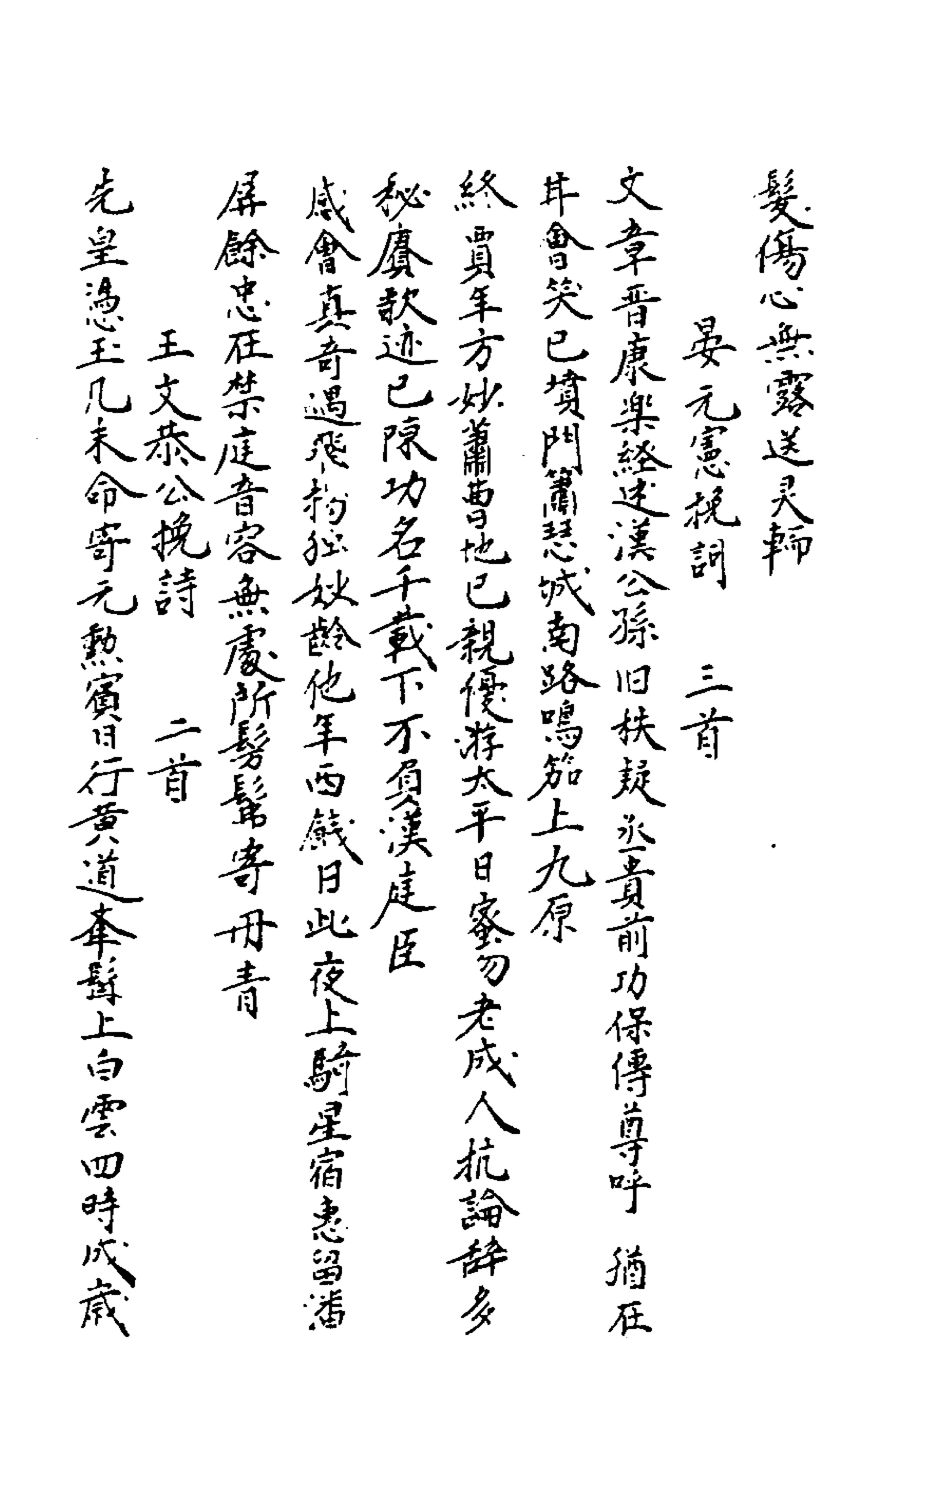 髮傷心無露送灵輀
晏元憲挽詞 三首
文章晋康楽経述漢公孫旧秩疑丞貴前功保傳尊呼 猶在
耳會笑已墳門簫瑟城南路鳴笳上九原
終賈年方妙蕭曹地已親優游太平日蜜勿老成人抗論辞多
秘賡歌迹已陳功名千載下不負漢庭臣
感會真奇遇飛物独妙齡他年西餞日此夜上騎星宿惠留潘
屏餘忠在禁庭音容無處所髣髴寄冊青
王文恭公挽詩 二首
先皇憑玉几末命寄元勲賓日行黄道牽髯上白雲四時成歳